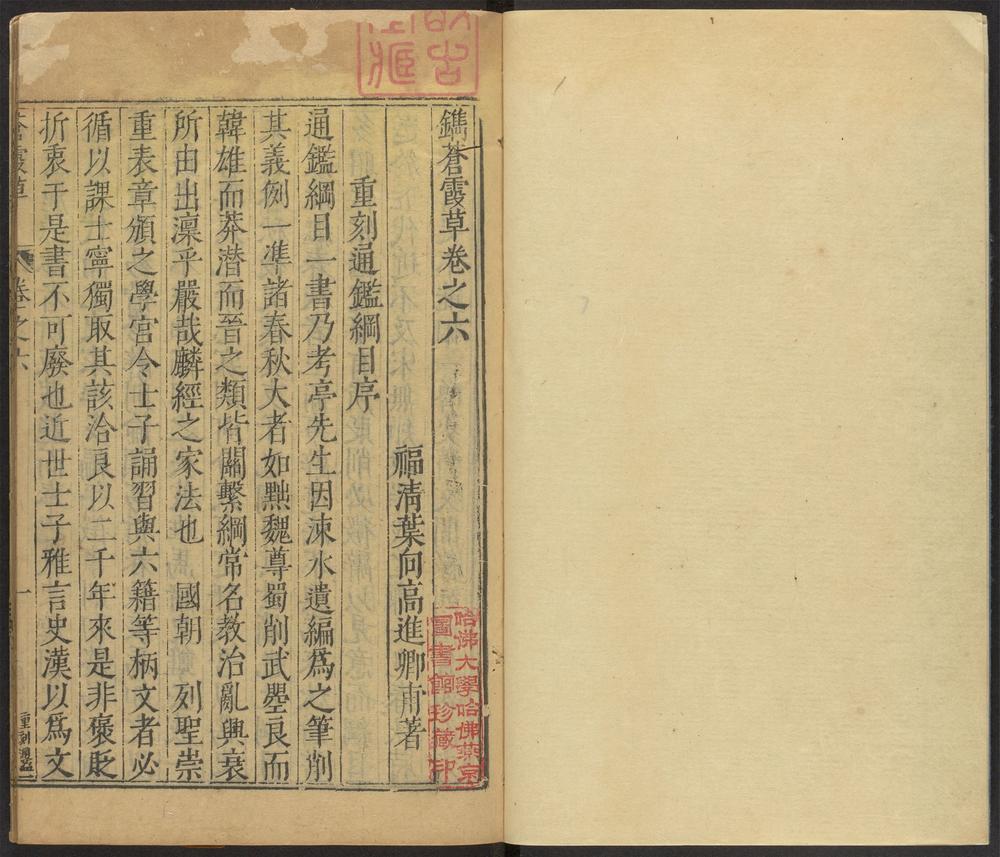 鐫蒼霞草卷之六
福清葉向高進卿甫著
重刻通鑑綱目序
通鑑綱目一書乃考亭先生因涑水遺編爲之筆削
其義例一準諸春秋大者如黜魏尊蜀削武曌良而
韓雄而莽潜而晉之類皆關繫綱常名教治亂興衰
所由出凜乎嚴哉麟經之家法也　國朝　列聖崇
重表章頒之學宮令士子誦習與六籍等柄文者必
循以課士寧獨取其該洽良以二千年來是非褒貶
折衷于是書不可廢也近世士子雅言史漢以爲文
蒼霞草
卷之六
一
重刻通鑑
哈佛大學哈佛燕京
圖書館珍藏印